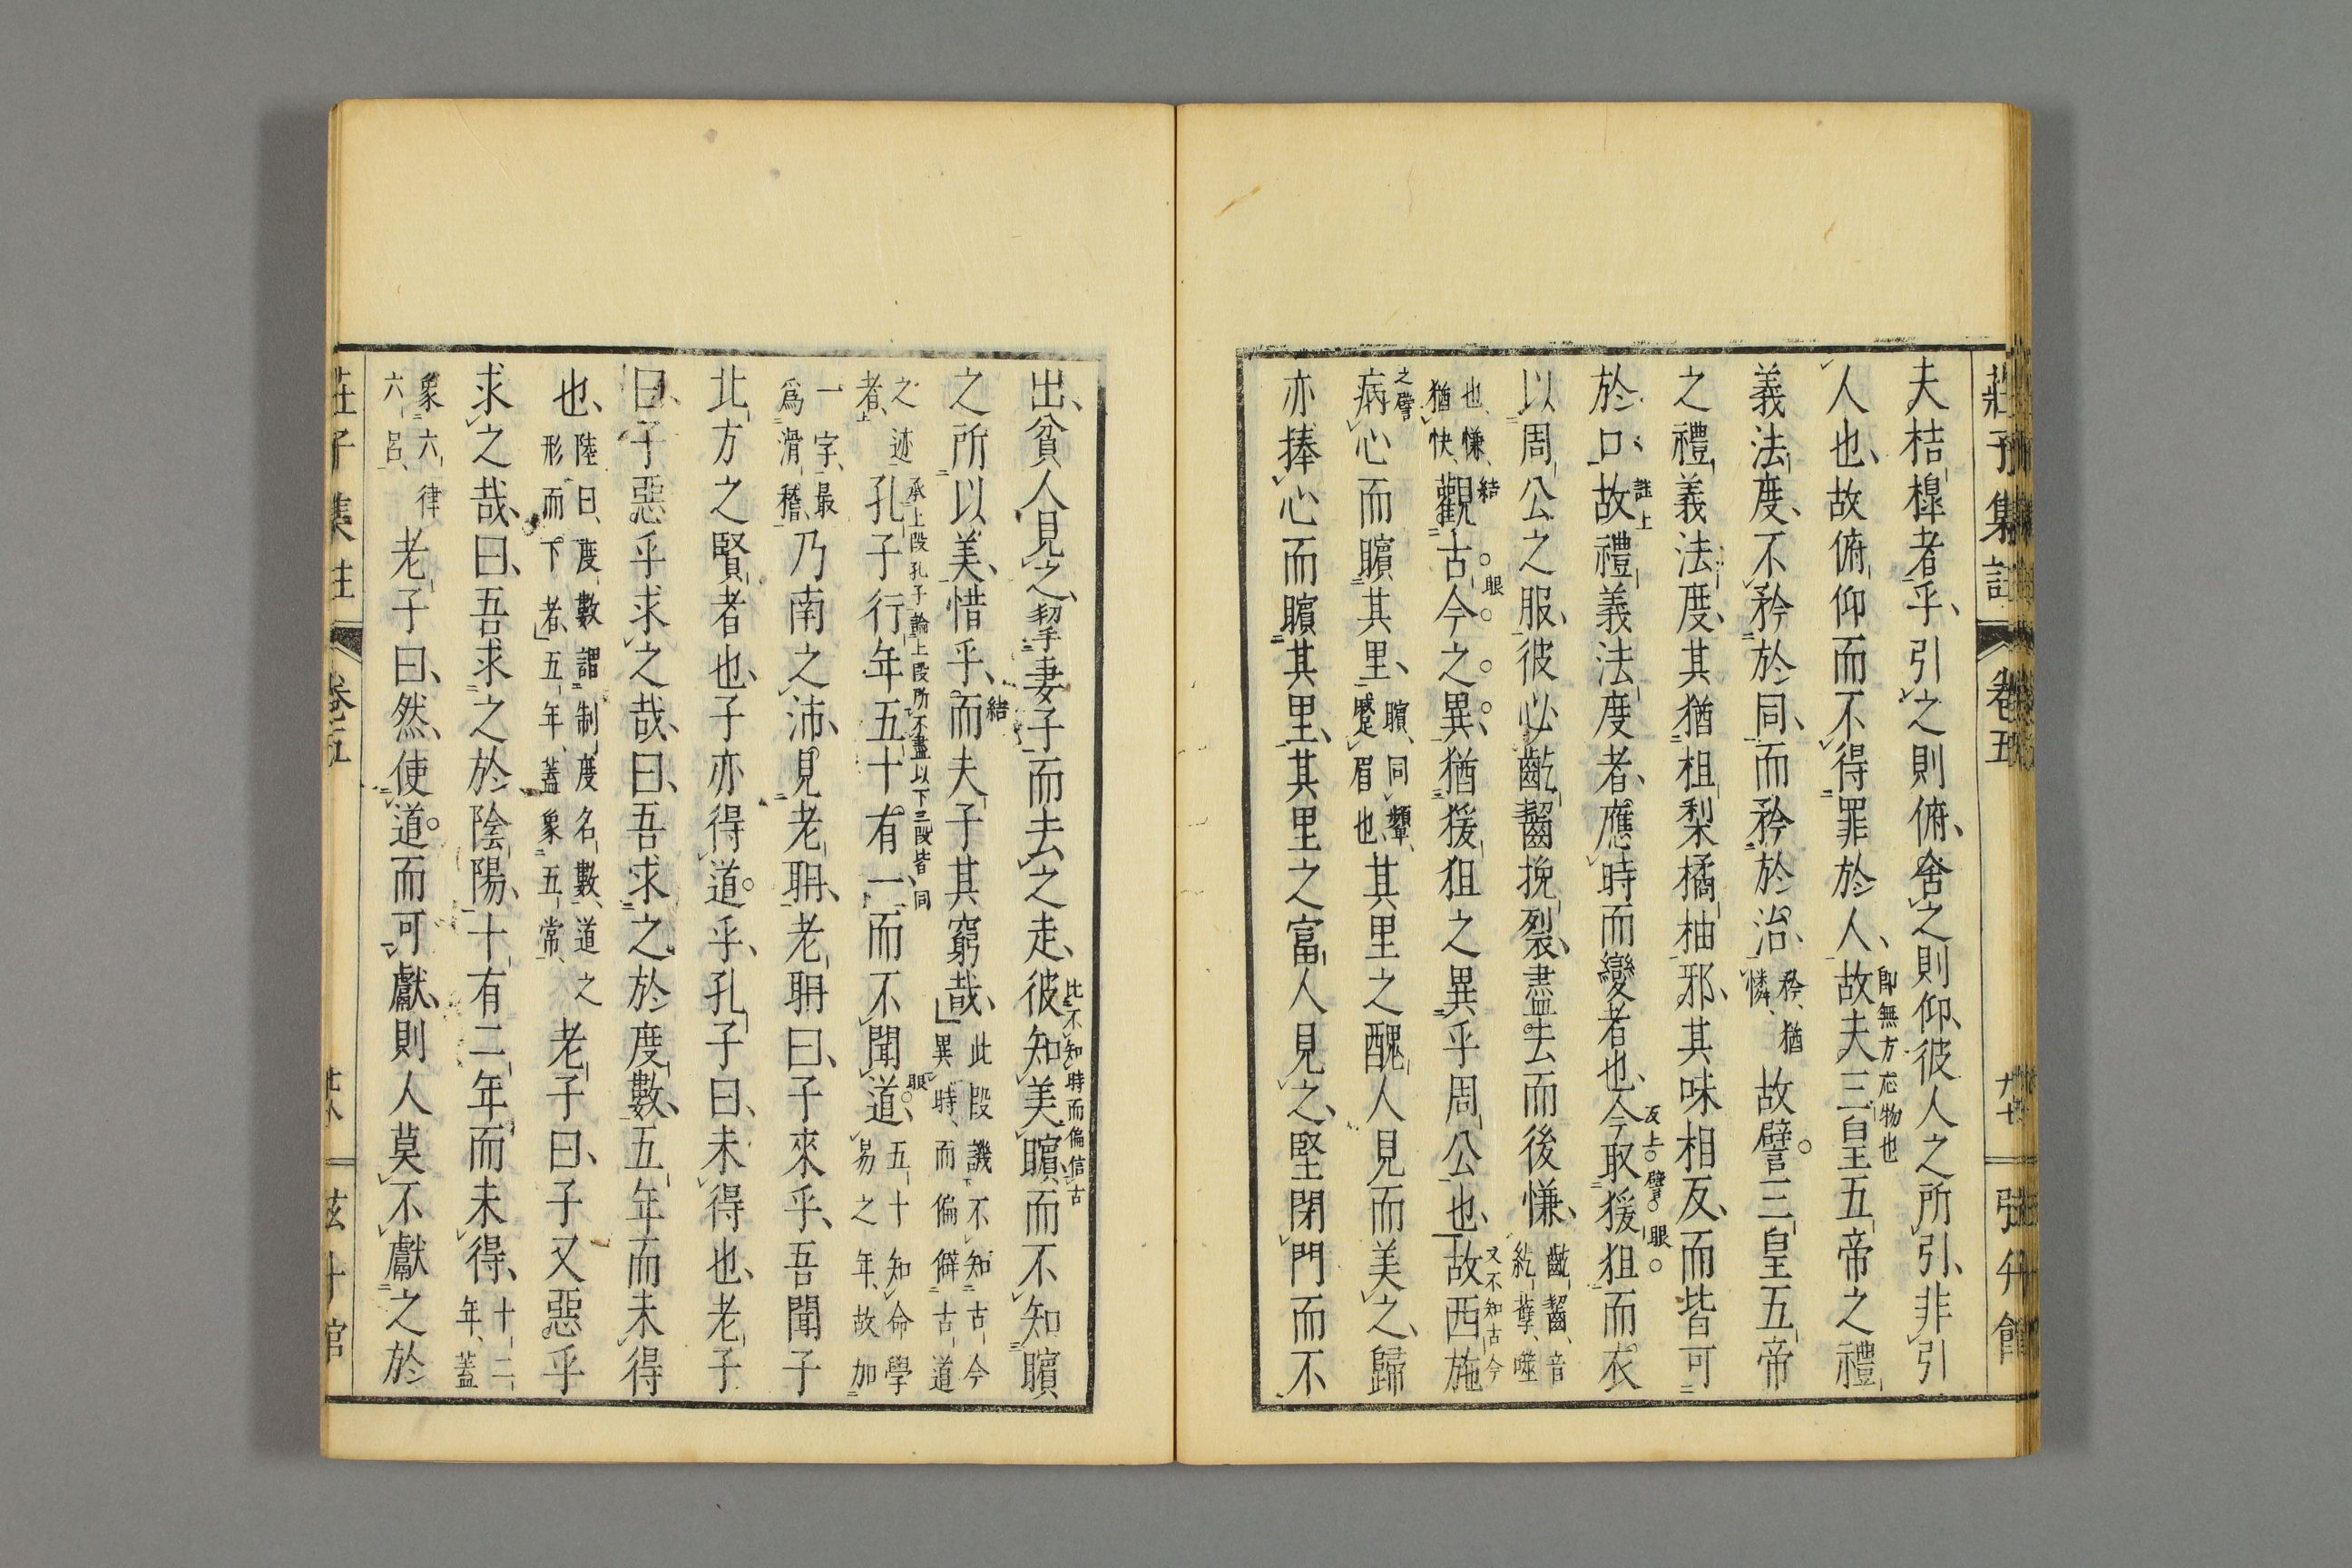 莊子集註 卷五 九七 弦升館
夫桔橰者乎、引之則俯、舍之則仰、彼人之所引、非引
人也、故俯仰而不得罪於人、故夫三皇五帝之禮
即無方応物也
義法度、不矜於同、而矜於治、矜、猶憐、故譬三皇五帝
之禮義法度、其猶柤梨橘柚邪、其味相反、而皆可
於口、故禮義法度者、應時而變者也、今取猨狙而衣
註上
反上譬 眼
以周公之服、彼必齕齧挽裂、盡去而後慊、齕、齧、音紇、孽、噬
也、慊、猶快、觀古今之異、猶猨狙之異乎周公也、故西施
結
眼
又不知古今
之譬
病心而矉其里、矉、同顰、蹙眉也、其里之醜人見而美之、歸
亦捧心而矉其里、其里之富人見之、堅閉門而不
出、貧人見之、挈妻子而去之走、彼知美矉而不知矉
比不知時而偏信古
之所以美、惜乎、而夫子其窮哉、此段譏不知古今異時、而偏僻古道
結
之迹者、孔子行年五十有一、而不聞道、五十知命學易之年、故加
承上段孔子論上段所不盡以下三段皆同
眼
一字、最爲滑稽、乃南之沛、見老耼、老耼曰、子來乎、吾聞子
北方之賢者也、子亦得道乎、孔子曰、未得也、老子
曰、子惡乎求之哉、曰、吾求之於度數、五年而未得
也、陸曰、度數謂制度名數、道之形而下者、五年、蓋象五常、老子曰、子又惡乎
求之哉、曰、吾求之於陰陽、十有二年而未得、十二年、蓋
象六律六呂、老子曰、然、使道而可獻、則人莫不獻之於
莊子集註 卷五